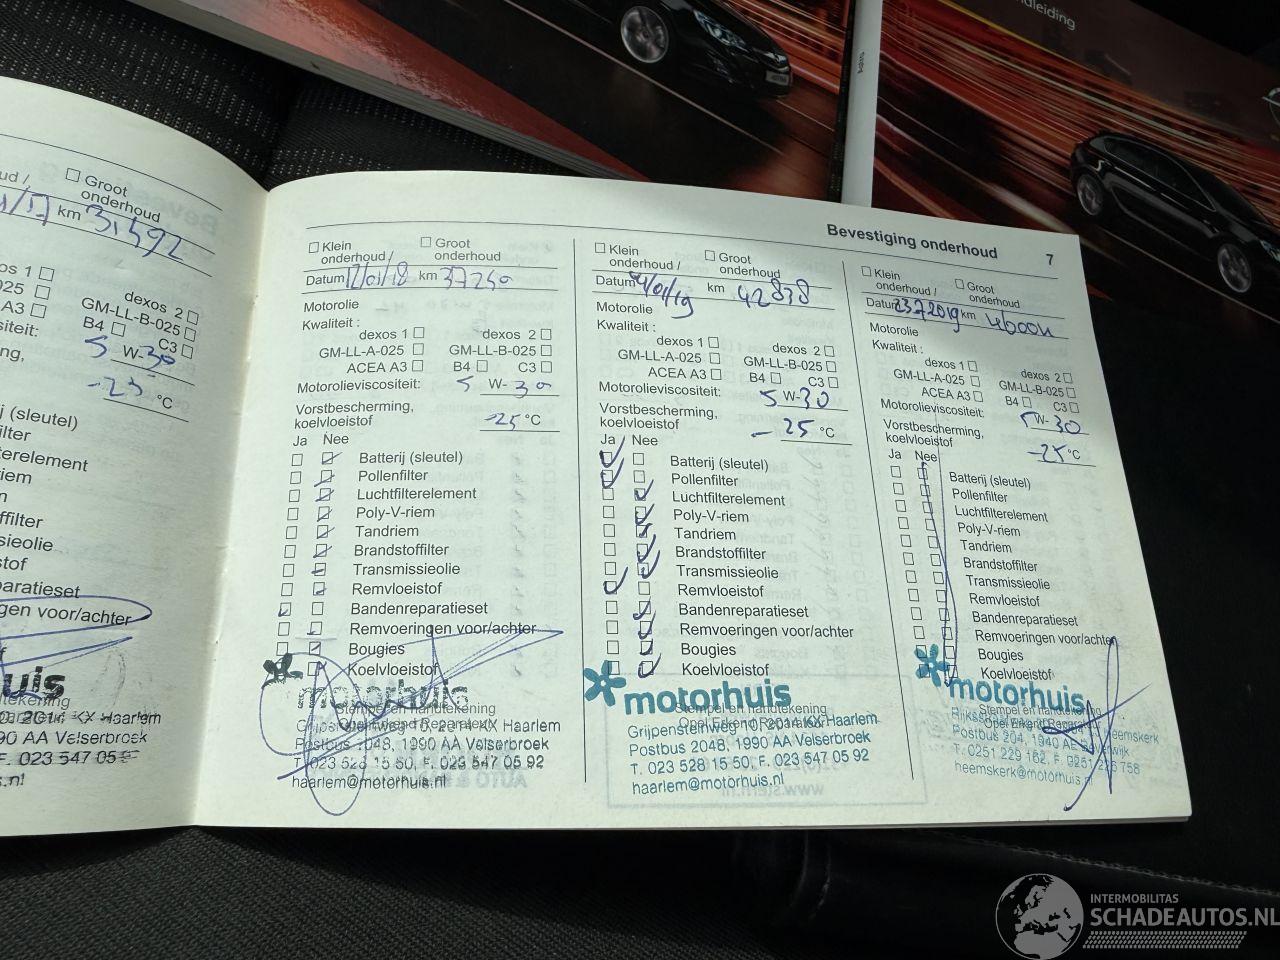 ndleiding
Astra
ud /
Groot
onderhoud
/17 km 31.492
os 1
dexos 2
025
GM-LL-B-025
A3
B4
C3
siteit:
5 W-30
ing,
-25 °C
ij (sleutel)
ilter
erelement
iem
n
filter
ssieolie
stof
aratieset
gen voor/achter
f
huis
tekening
2014 KX Haarlem
90 AA Velserbroek
F. 023 547 05
s.nl
Bevestiging onderhoud 7
Klein
onderhoud /
Groot
onderhoud
Datum 12/01/18 km 37250
Motorolie
Kwaliteit :
dexos 1 dexos 2
GM-LL-A-025 GM-LL-B-025
ACEA A3 B4 C3
Motorolieviscositeit: 5 W-30
Vorstbescherming,
koelvloeistof -25 °C
Ja Nee
Batterij (sleutel)
Pollenfilter
Luchtfilterelement
Poly-V-riem
Tandriem
Brandstoffilter
Transmissieolie
Remvloeistof
Bandenreparatieset
Remvoeringen voor/achter
Bougies
Koelvloeistof
motorhuis
Stempel en handtekening
Opel Erkend Reparateur
Grijpensteinweg 10, 2014 KX Haarlem
Postbus 2048, 1990 AA Velserbroek
T. 023 528 15 50, F. 023 547 05 92
haarlem@motorhuis.nl
Klein
onderhoud /
Groot
onderhoud
Datum /01/19 km 42838
Motorolie
Kwaliteit :
dexos 1 dexos 2
GM-LL-A-025 GM-LL-B-025
ACEA A3 B4 C3
Motorolieviscositeit: 5 W-30
Vorstbescherming,
koelvloeistof -25 °C
Ja Nee
Batterij (sleutel)
Pollenfilter
Luchtfilterelement
Poly-V-riem
Tandriem
Brandstoffilter
Transmissieolie
Remvloeistof
Bandenreparatieset
Remvoeringen voor/achter
Bougies
Koelvloeistof
motorhuis
Stempel en handtekening
Opel Erkend Reparateur
Grijpensteinweg 10, 2014 KX Haarlem
Postbus 2048, 1990 AA Velserbroek
T. 023 528 15 50, F. 023 547 05 92
haarlem@motorhuis.nl
Klein
onderhoud /
Groot
onderhoud
Datum 237 2019 km
Motorolie
Kwaliteit :
dexos 1 dexos 2
GM-LL-A-025 GM-LL-B-025
ACEA A3 B4 C3
Motorolieviscositeit: 5 W-30
Vorstbescherming,
koelvloeistof -25 °C
Ja Nee
Batterij (sleutel)
Pollenfilter
Luchtfilterelement
Poly-V-riem
Tandriem
Brandstoffilter
Transmissieolie
Remvloeistof
Bandenreparatieset
Remvoeringen voor/achter
Bougies
Koelvloeistof
motorhuis
Stempel en handtekening
Opel Erkend Reparateur
Heemskerk
Postbus 204, 1940 AE
T. 0251 229 162, F. 0251 758
heemskerk@motorhuis.nl
INTERMOBILITAS
SCHADEAUTOS.NL